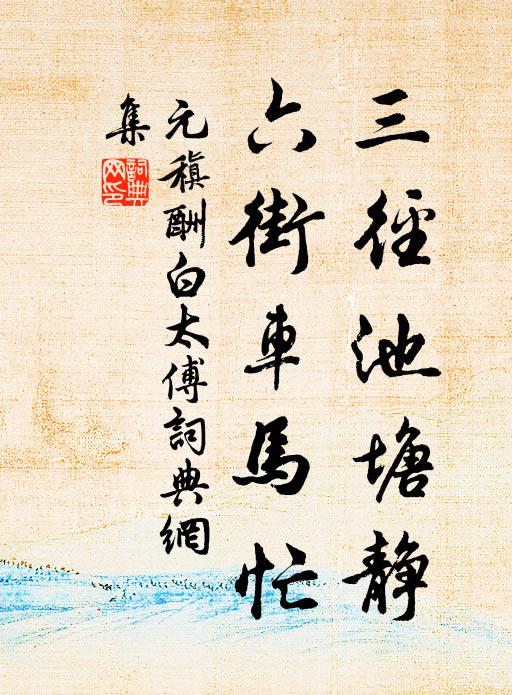 三徑池塘靜
六街車馬忙
元稹酬白太傅詞典網
集
詞典網印